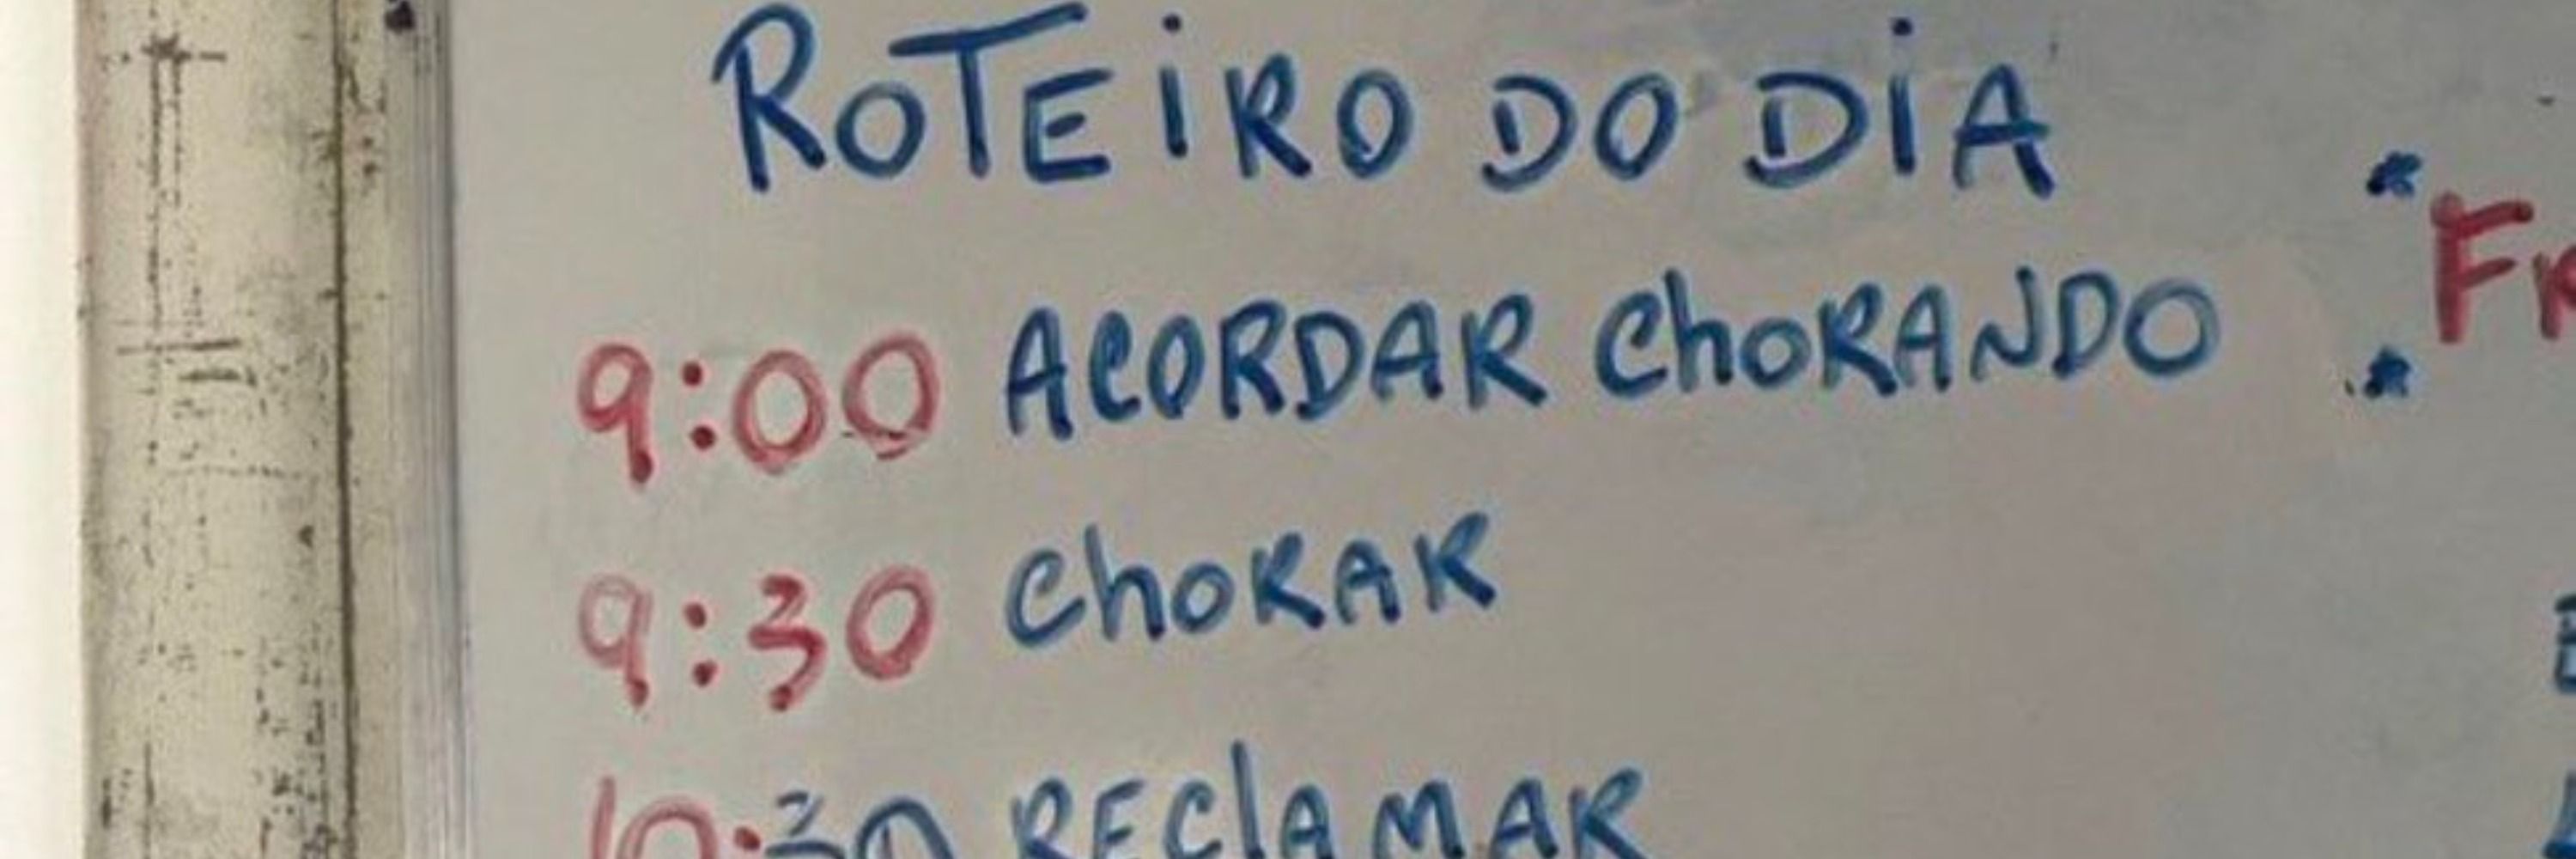 ROTEiRO DO DiA
9:00 ACORDAR ChORANDO
9:30 ChORAR
10:30 REClAMAR